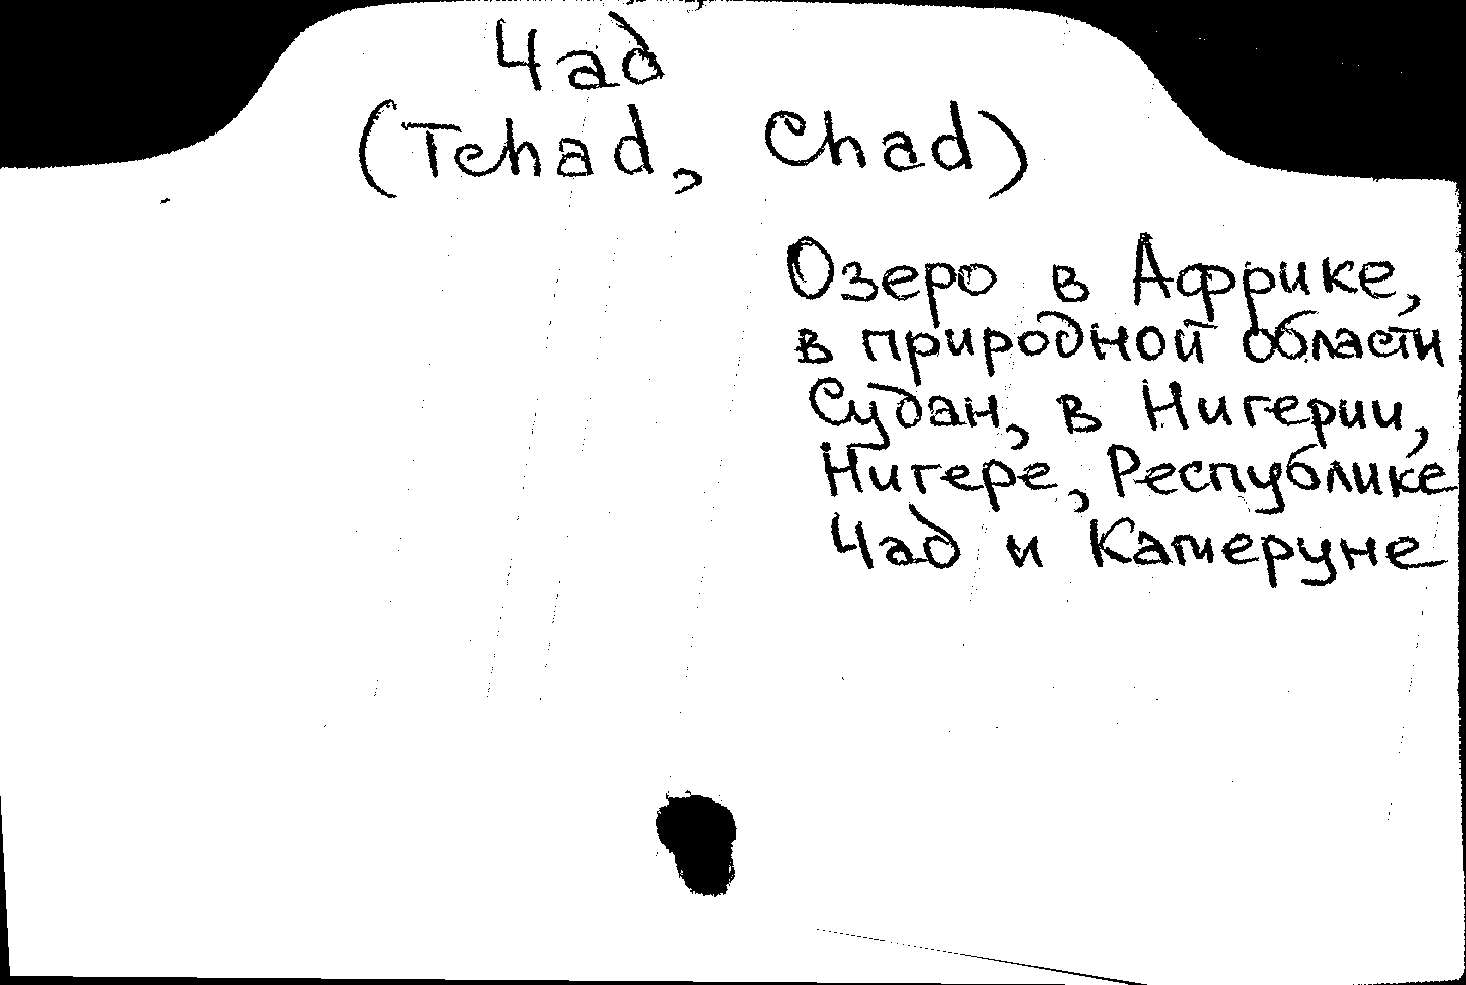 Чад
(Tchad, Chad)
Озеро в Африке,
в природной области
Судан, в Нигерии,
Нигере, Республике
Чад и Камеруне